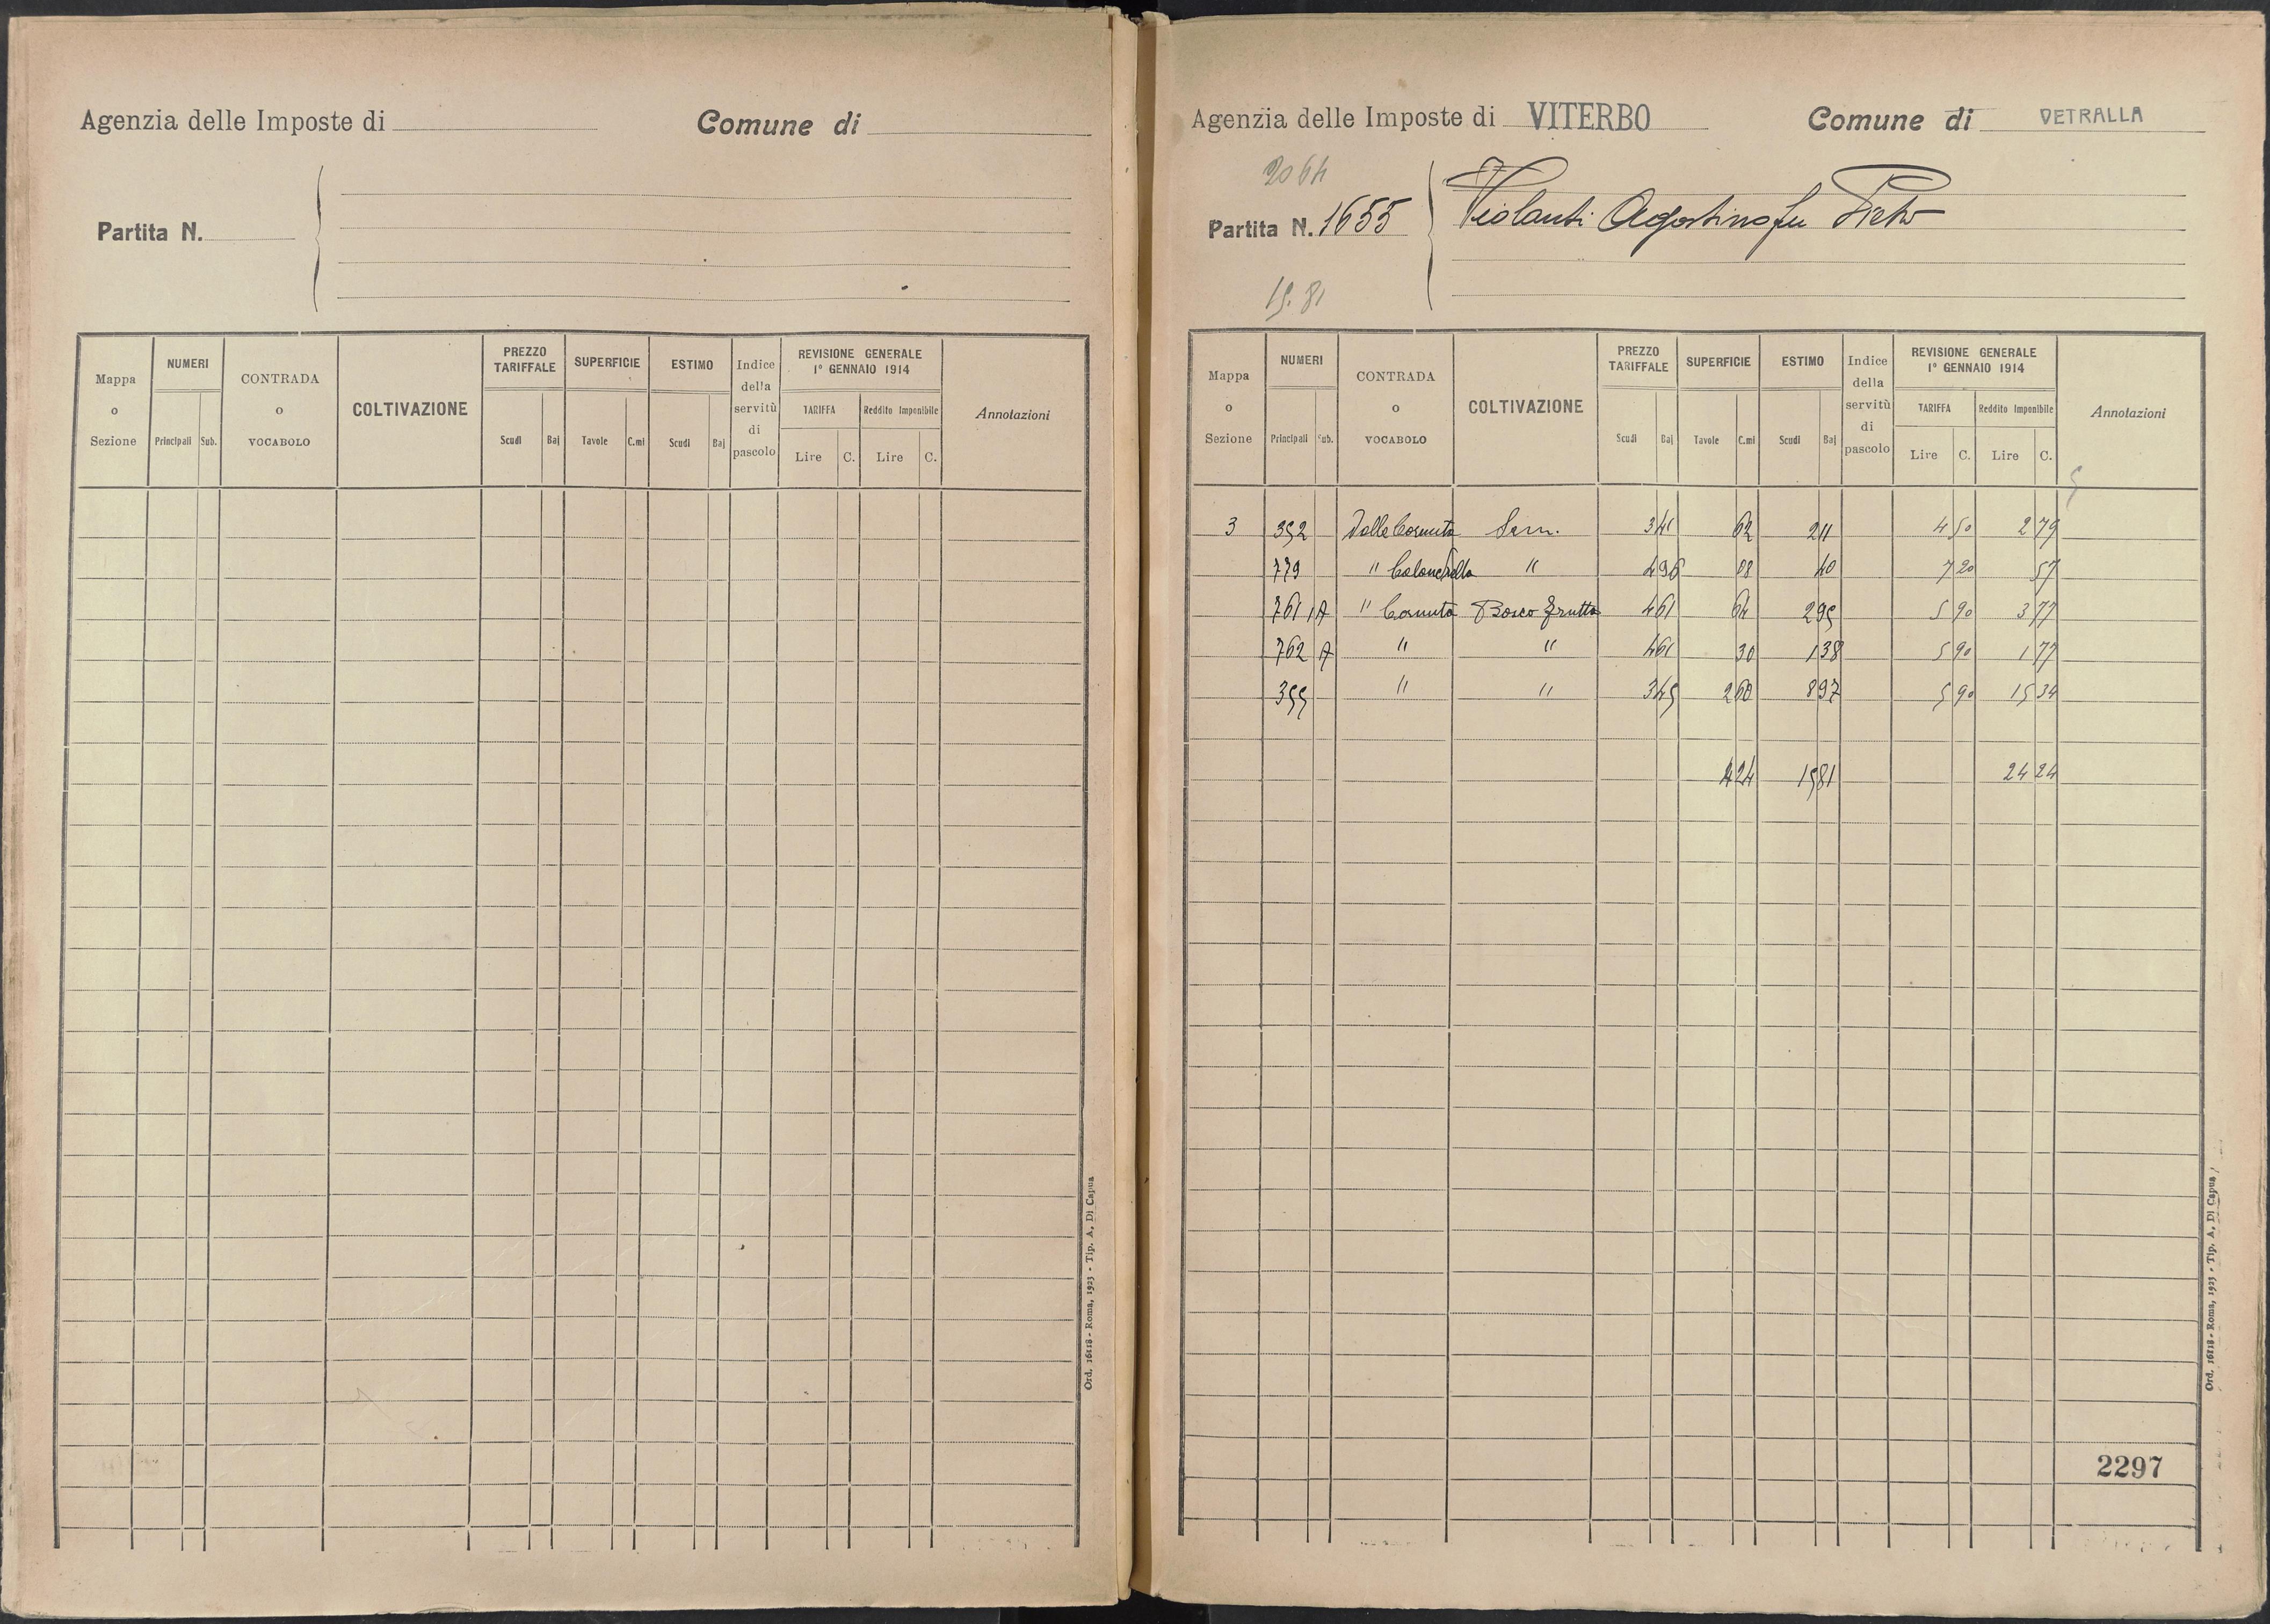 Agenzia delle Imposte di
Comune di
Partita N.
Mappa o Sezione
NUMERI
Principali Sub.
CONTRADA o VOCABOLO
COLTIVAZIONE
PREZZO TARIFFALE
Scudi Baj
SUPERFICIE
Tavole C.mi
ESTIMO
Scudi Baj
Indice della servitù di pascolo
REVISIONE GENERALE
1° GENNAIO 1914
TARIFFA Reddito Imponibile
Lire C. Lire C.
Annotazioni
Ord. 16118 - Roma, 1923 - Tip. A. Di Capua
Agenzia delle Imposte di VITERBO
Comune di VETRALLA
2064
Partita N. 1655
Violanti Agostino fu Pietro
15.81
Mappa o Sezione
NUMERI
Principali Sub.
CONTRADA o VOCABOLO
COLTIVAZIONE
PREZZO TARIFFALE
Scudi Baj
SUPERFICIE
Tavole C.mi
ESTIMO
Scudi Baj
Indice della servitù di pascolo
REVISIONE GENERALE
1° GENNAIO 1914
TARIFFA Reddito Imponibile
Lire C. Lire C.
Annotazioni
3 352 Valle Cornuta Sem. 3 41 62 2 11 4 50 2 79
779 " " 4 96 08 40 7 20 57
761 A " Cornuta Bosco frutto 4 61 64 2 95 5 90 3 77
762 A " " 4 61 30 1 38 5 90 1 77
355 " " 3 45 2 60 8 97 5 90 15 34
4 24 15 81 24 24
2297
Ord. 16118 - Roma, 1923 - Tip. A. Di Capua